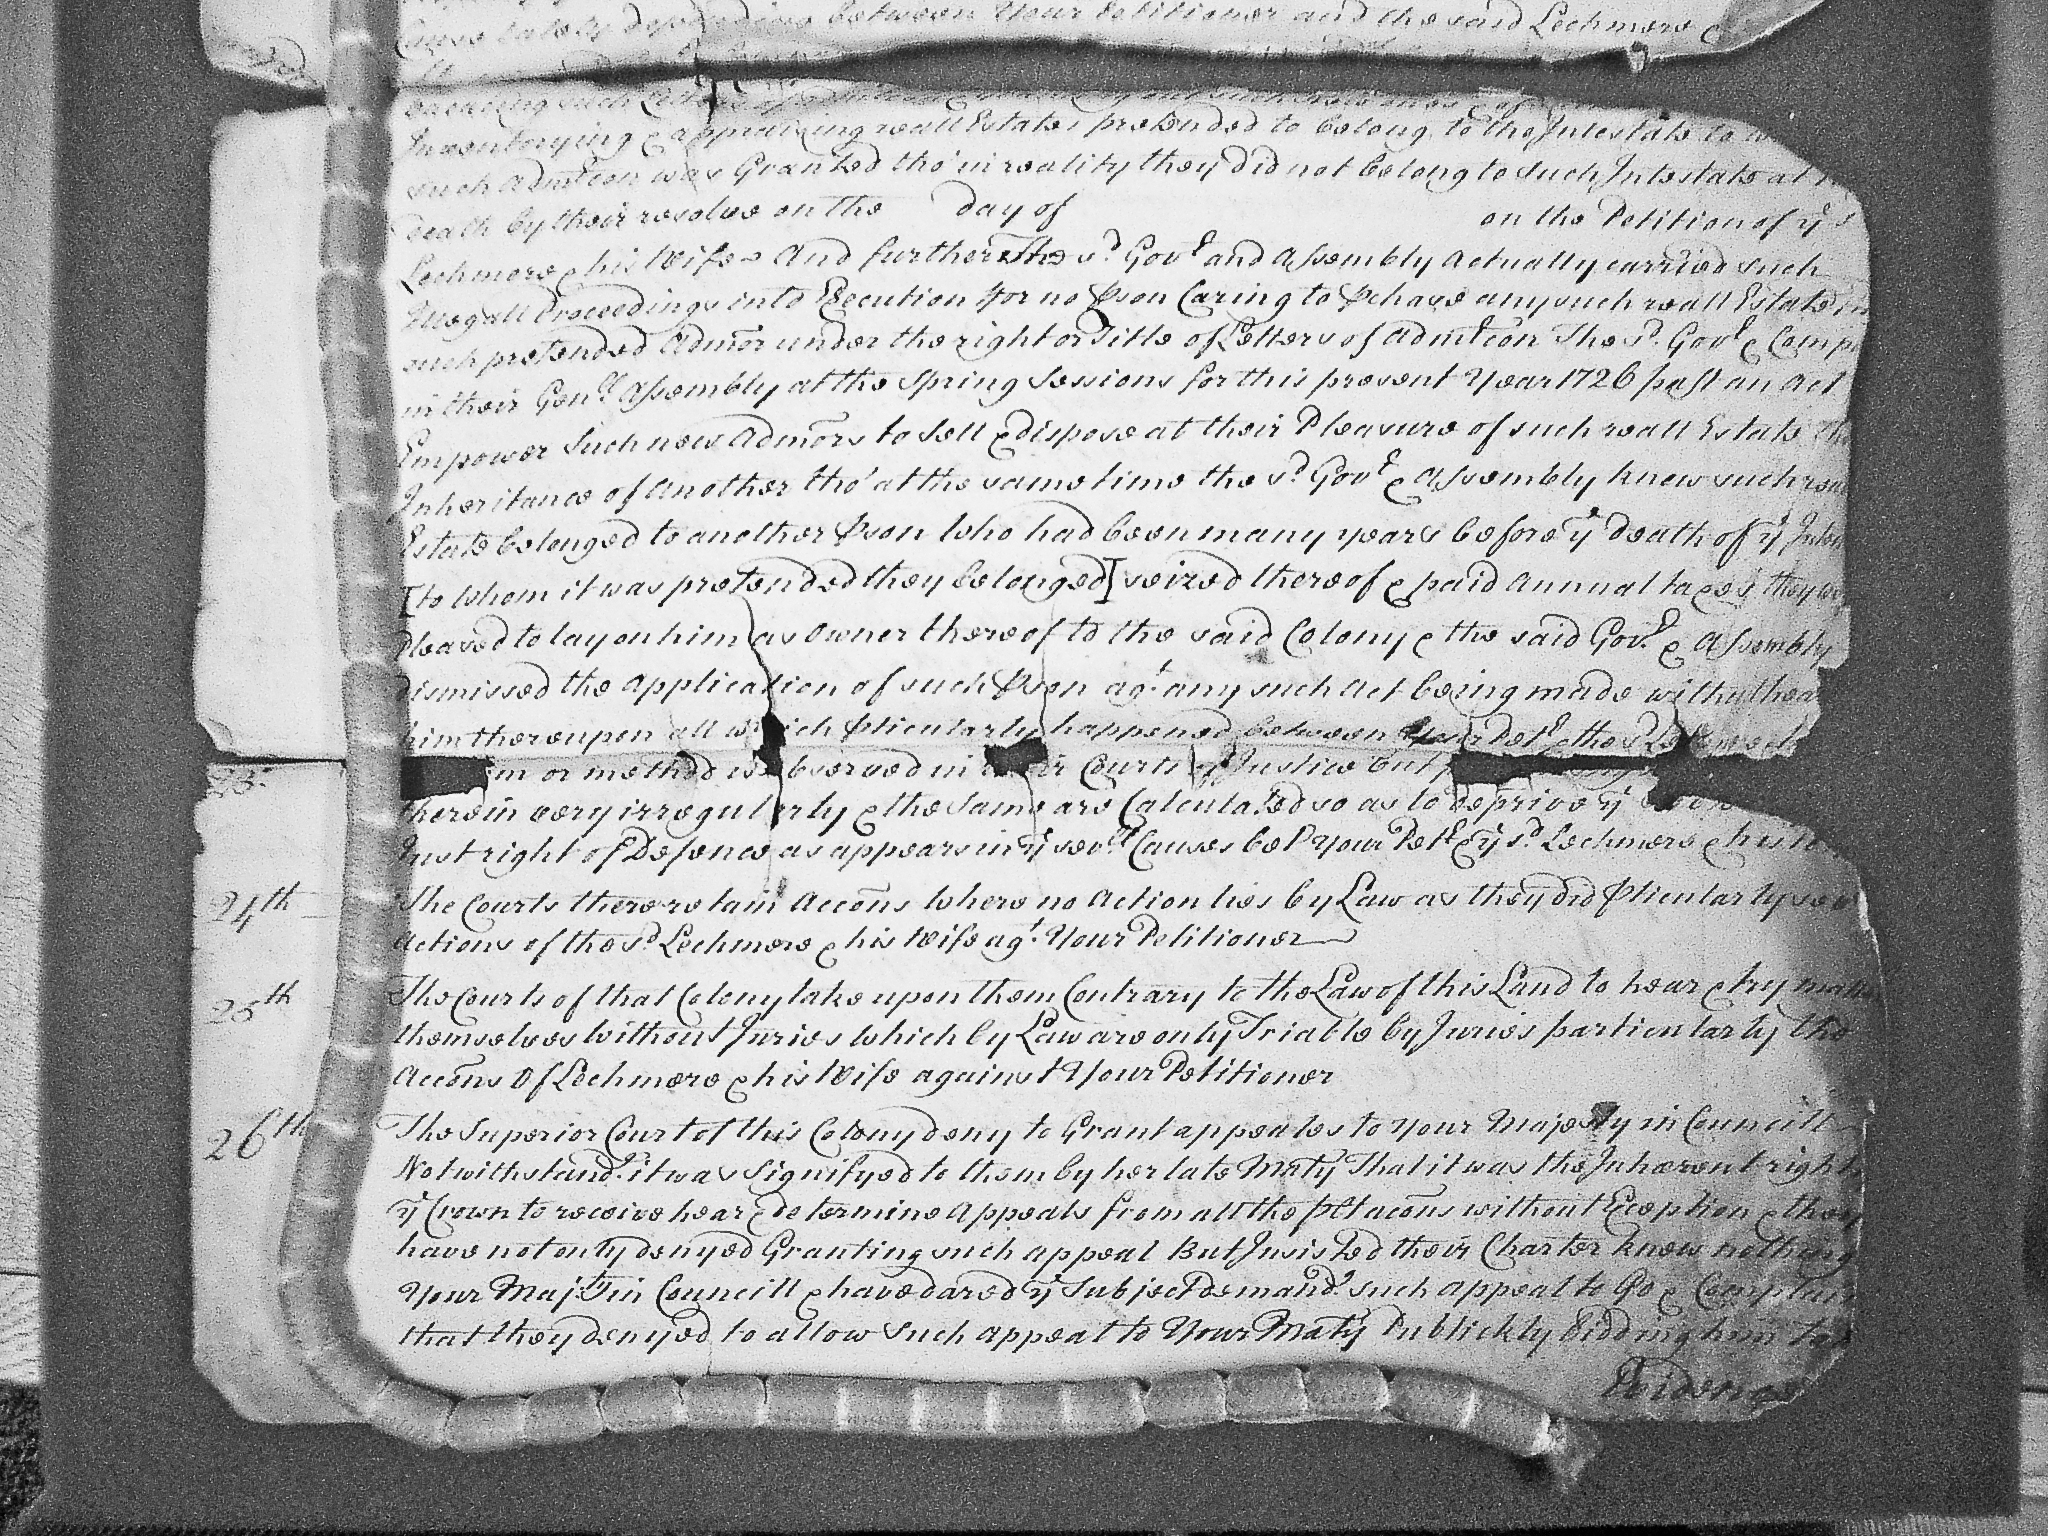 Cause lately depending between Your Petitioner and the said Lechmere &
Inventorying & appraizing reall Estates pretended to belong to the Intestate to
such Admcon was Granted tho' in reality they did not belong to such Intestate at
death by their resolve on the day of on the Petition of yᵉ sᵈ
Lechmere & his Wife And further The sᵈ. Govᵗ and Assembly Actually carried such
Illegall Proceedings into Execution & for no Pson Caring to Pchase any such reall Estate
such pretended Admor under the right or Title of Letters of Admcon The sᵈ. Govᵗ & Comp
in their Genˡˡ Assembly at the Spring Sessions for this present Year 1726 past an Act
Empower Such new Admors to Sell & dispose at their Pleasure of such reall Estate the
Inheritance of Another tho' at the same time the sᵈ. Govᵗ & Assembly knew such reall
Estate belonged to another Pson Who had been many years before yᵉ death of yᵉ
[to Whom it was pretended they belonged] seized thereof & paid Annual taxes they
Pleased to lay on him as Owner thereof to the said Colony & the said Govᵗ. & Assembly
dismissed the Application of such Pson agᵗ. any such Act being made without hear
him thereupon all which Pticularly happened between Your Petʳ & the sᵈ
23. or method is observed in their Courts of Justice but
therein very irregularly & the same are Calculated so as to deprive yᵉ
Just right of Defence as appears in yᵉ sevˡˡ Causes beᵗ Your Petʳ & yᵉ sᵈ. Lechmere & his
24th The Courts there retain Accons Where no Action lies by Law as they did Pticularly
Actions of the sᵈ Lechmere & his Wife agᵗ. Your Petitioner
25th The Courts of that Colony take upon them Contrary to the Law of this Land to hear & try
themselves Without Juries Which by Law are only Triable by Juries particularly the
Accons Of Lechmere & his Wife against Your Petitioner
26th The Superior Court of this Colony deny to Grant appeales to Your Majesty in Councill
Notwithstandᵍ. it was Signifyed to them by her late Maty That it was the Inherent right
yᵉ Crown to receive hear & determine Appeals from all the Plantacons without Exception & they
have not only denyed Granting such appeal But Insisted their Charter knew nothing
Your Majᵗʸ in Councill & have dared yᵉ Subject Demandᵍ. such Appeal to Go & Complain
that they denyed to allow such Appeal to Your Maty Publickly bidding him to